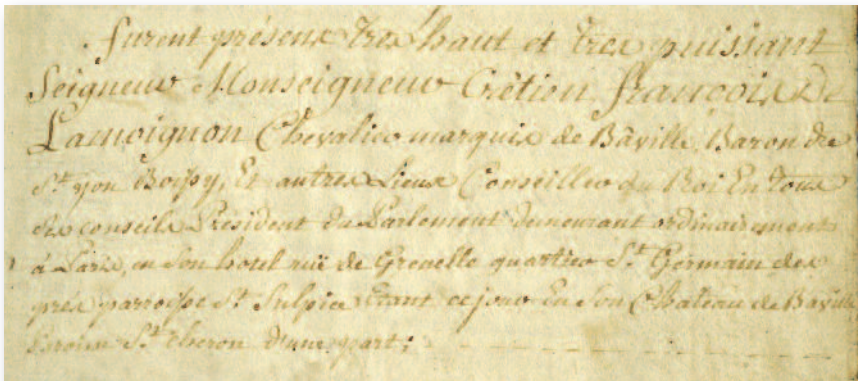 furent présens tres haut et tres puissant
Seigneur Monseigneur Crêtien françois De
Lamoignon Chevalier marquis de Bâville, Baron de
St. yon Boissy, Et autres Lieux Conseiller du Roi En tous
ses conseils Président du Parlement demeurant ordinairement
à Paris, en son hotel ruë de Grenelle quartier St. Germain des
prés parroisse St. Sulpice Etant ce jour En son Chateau de Baville
St. cheron d'une part;